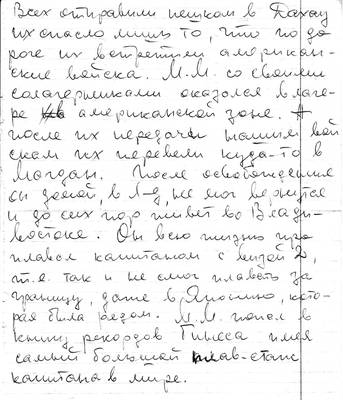 Всех отправили пешком в Дахау
их спасло лишь то, что по до
роге их встретили американ-
ские войска. М.М. со своими
солагерниками оказался в лаге-
ре в американской зоне. А
после их передачи нашим вой
скам их перевели куда-то в
Магдан. После освобождения
он домой, в Л-д, не мог вернутся
и до сих пор живет во Влади-
востоке. Он всю жизнь про
плавал капитаном с визой 2,
т.е. так и не смог плавать за
границу, даже в Японию, кото-
рая была рядом. М.М. попал в
книгу рекордов Гинесса имея
самый большой плав-стаж
капитана в мире.